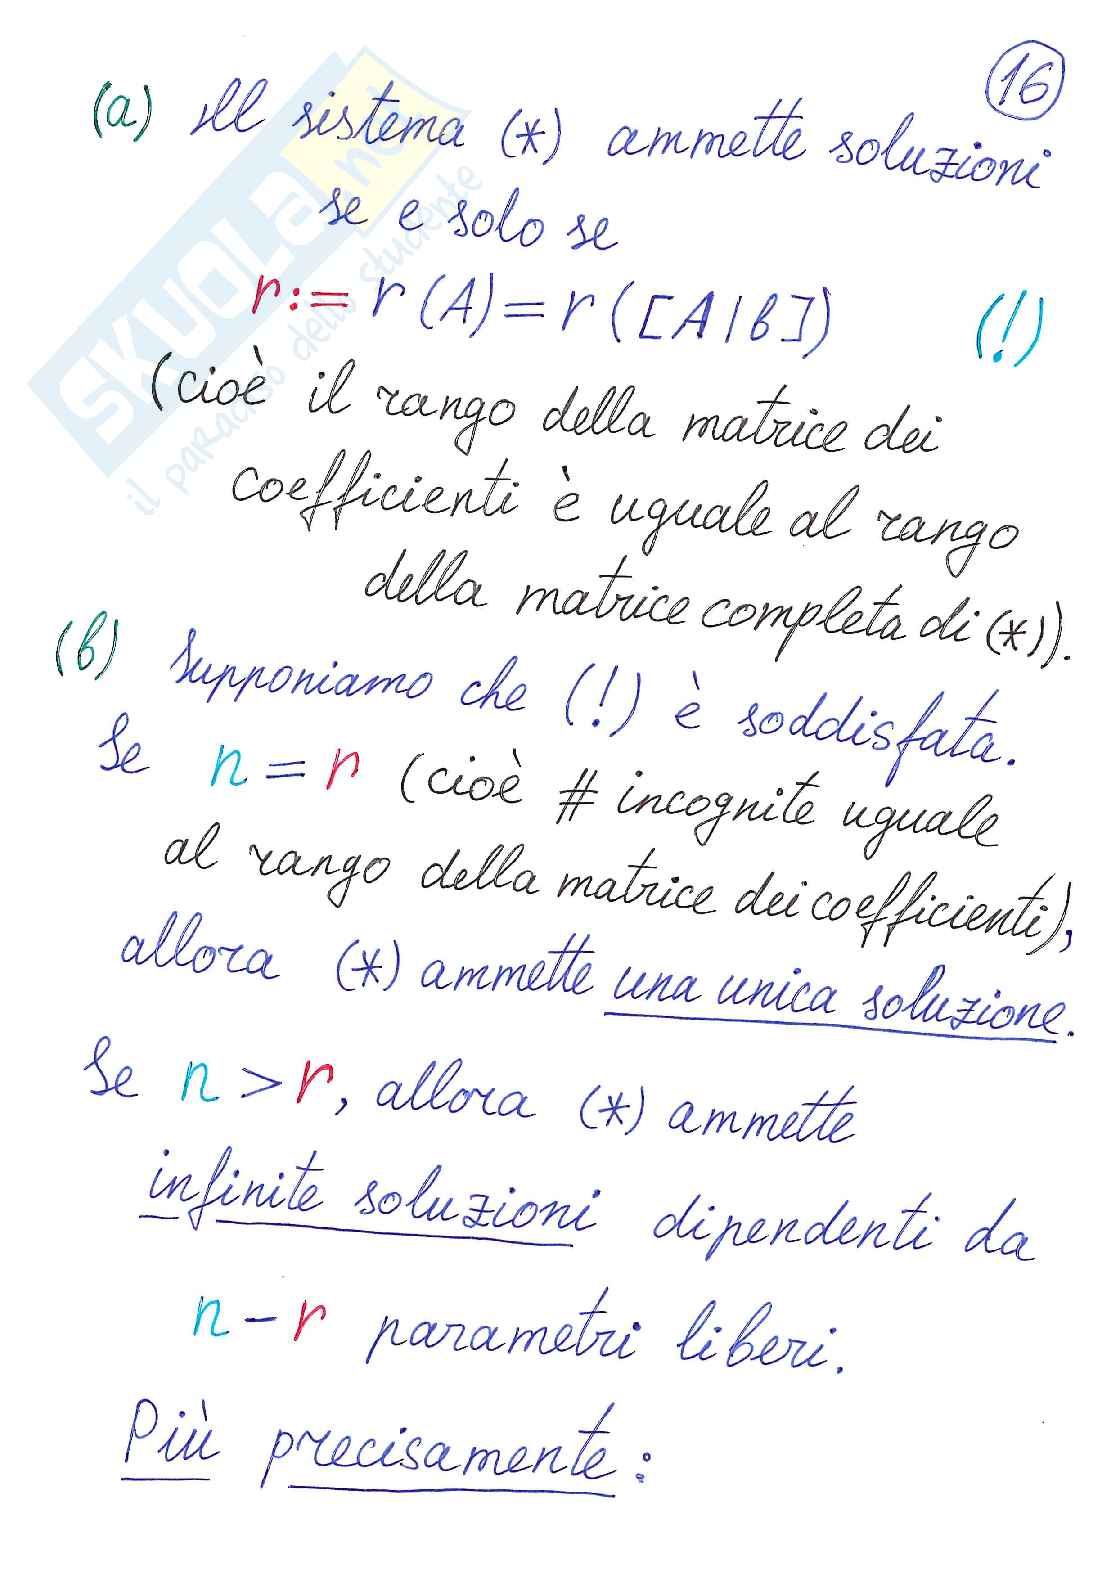 16
(a) Il sistema (*) ammette soluzioni
se e solo se
r := r (A) = r ([A|b]) (!)
(cioè il rango della matrice dei
coefficienti è uguale al rango
della matrice completa di (*)).
(b) Supponiamo che (!) è soddisfata.
Se n = r (cioè # incognite uguale
al rango della matrice dei coefficienti),
allora (*) ammette una unica soluzione.
Se n > r, allora (*) ammette
infinite soluzioni dipendenti da
n - r parametri liberi.
Più precisamente:
SKUOLA.net
il paradiso dello studente